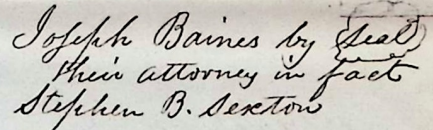 Joseph Baines by Seal
their attorney in fact
Stephen B. Sexton